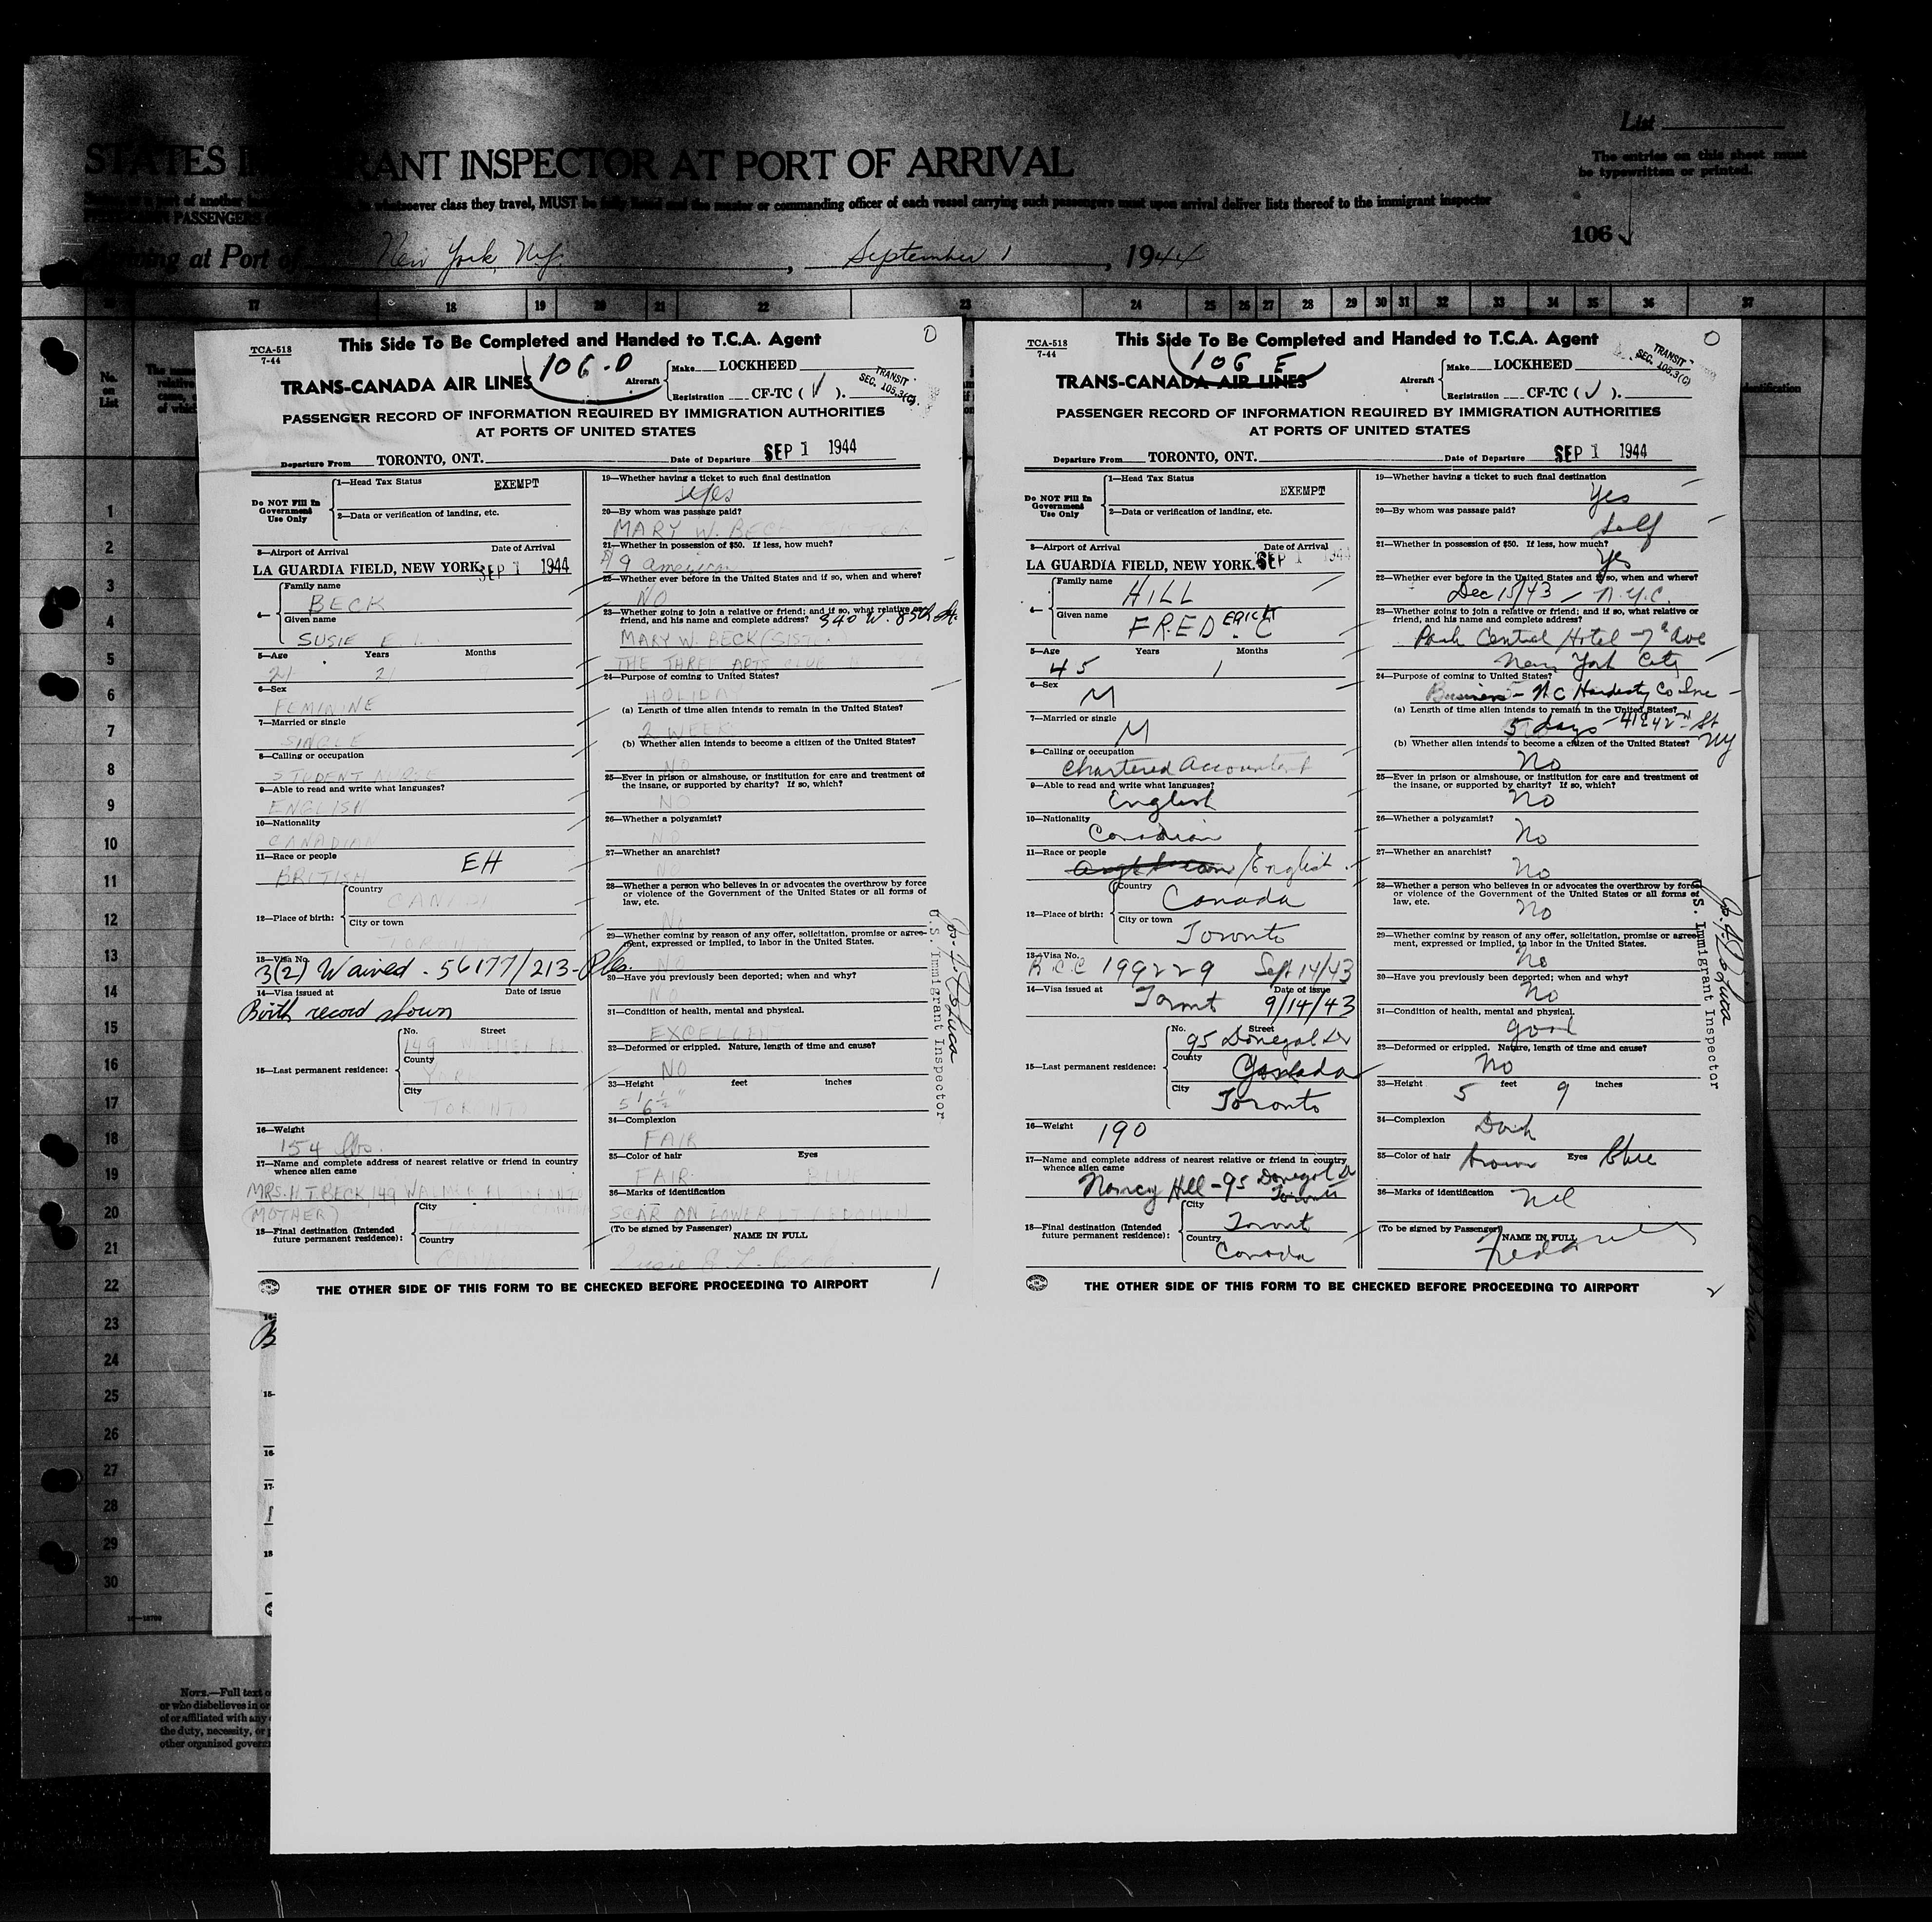 List
The entries on this sheet must
be typewritten or printed.
STATES RANT INSPECTOR AT PORT OF ARRIVAL
whatsoever class they travel, MUST be and the master or commanding officer of each vessel carrying such passengers must upon arrival deliver lists thereof to the immigrant inspector
PASSENGERS
106
at Port of New York, N.Y. , September 1 , 1944
17 18 19 20 21 22 23 24 25 26 27 28 29 30 31 32 33 34 35 36 37
No.
on
List
1
2
3
4
5
6
7
8
9
10
11
12
13
14
15
16
17
18
19
20
21
22
23
24
25
26
27
28
29
30
NOTE.—Full text
or who disbelieves in or
of or affiliated with any
the duty, necessity, or
other organized govern
TCA-518
7-44
This Side To Be Completed and Handed to T.C.A. Agent
O
106-D
TRANS-CANADA AIR LINES
Aircraft
Make LOCKHEED
Registration CF-TC ( V ).
TRANSIT
SEC. 105.3(C)
PASSENGER RECORD OF INFORMATION REQUIRED BY IMMIGRATION AUTHORITIES
AT PORTS OF UNITED STATES
Departure From TORONTO, ONT. Date of Departure SEP 1 1944
Do NOT Fill In
Government
Use Only
1—Head Tax Status EXEMPT
2—Data or verification of landing, etc.
3—Airport of Arrival Date of Arrival
LA GUARDIA FIELD, NEW YORK. SEP 1 1944
4—
Family name
BECK
Given name
SUSIE E L
5—Age Years Months
21 21
6—Sex
FEMININE
7—Married or single
SINGLE
8—Calling or occupation
STUDENT NURSE
9—Able to read and write what languages?
ENGLISH
10—Nationality
CANADIAN
11—Race or people EH
BRITISH
12—Place of birth:
Country
CANADA
City or town
TORONTO
13—Visa No.
3(2) Waived - 56177/213-
14—Visa issued at Date of issue
Birth record shown
15—Last permanent residence:
No. Street
149 WALMER RD
County
YORK
City
TORONTO
16—Weight
154 lbs.
17—Name and complete address of nearest relative or friend in country
whence alien came
MRS. H.T. BECK, 149 WALMER RD TORONTO
(MOTHER) CANADA
18—Final destination (Intended
future permanent residence):
City
TORONTO
Country
CANADA
19—Whether having a ticket to such final destination
yes
20—By whom was passage paid?
MARY W. BECK SISTER
21—Whether in possession of $50. If less, how much?
9 American
22—Whether ever before in the United States and if so, when and where?
NO
23—Whether going to join a relative or friend; and if so, what relative or
friend, and his name and complete address? 340 W. 85th St.
MARY W. BECK (SISTER)
THE THREE ARTS CLUB N
24—Purpose of coming to United States?
HOLIDAY
(a) Length of time alien intends to remain in the United States?
2 WEEKS
(b) Whether alien intends to become a citizen of the United States?
NO
25—Ever in prison or almshouse, or institution for care and treatment of
the insane, or supported by charity? If so, which?
NO
26—Whether a polygamist?
NO
27—Whether an anarchist?
NO
28—Whether a person who believes in or advocates the overthrow by force
or violence of the Government of the United States or all forms of
law, etc.
NO
29—Whether coming by reason of any offer, solicitation, promise or agree-
ment, expressed or implied, to labor in the United States.
NO
30—Have you previously been deported; when and why?
NO
31—Condition of health, mental and physical.
EXCELLENT
32—Deformed or crippled. Nature, length of time and cause?
NO
33—Height feet inches
5' 6½"
34—Complexion
FAIR
35—Color of hair Eyes
FAIR BLUE
36—Marks of identification
SCAR ON LOWER LT. ABDOMEN
(To be signed by Passenger) NAME IN FULL
Susie E. L. Beck
THE OTHER SIDE OF THIS FORM TO BE CHECKED BEFORE PROCEEDING TO AIRPORT
1
U.S. Immigrant Inspector
TCA-518
7-44
This Side To Be Completed and Handed to T.C.A. Agent
O
106 E
TRANS-CANADA AIR LINES
Aircraft
Make LOCKHEED
Registration CF-TC ( V ).
TRANSIT
SEC. 105.3(C)
PASSENGER RECORD OF INFORMATION REQUIRED BY IMMIGRATION AUTHORITIES
AT PORTS OF UNITED STATES
Departure From TORONTO, ONT. Date of Departure SEP 1 1944
Do NOT Fill In
Government
Use Only
1—Head Tax Status EXEMPT
2—Data or verification of landing, etc.
3—Airport of Arrival Date of Arrival
LA GUARDIA FIELD, NEW YORK. SEP 1 1944
4—
Family name
HILL
Given name
FREDERICK C
5—Age Years Months
45 1
6—Sex
M
7—Married or single
M
8—Calling or occupation
Chartered Accountant
9—Able to read and write what languages?
English
10—Nationality
Canadian
11—Race or people
/English
12—Place of birth:
Country
Canada
City or town
Toronto
13—Visa No.
R.C.C 199229 Sept 14/43
14—Visa issued at Date of issue
Toront 9/14/43
15—Last permanent residence:
No. Street
95 Donegal Dr
County
Canada
City
Toronto
16—Weight
190
17—Name and complete address of nearest relative or friend in country
whence alien came
Nancy Hill - 95 Donegal Dr
Toronto
18—Final destination (Intended
future permanent residence):
City
Toront
Country
Canada
19—Whether having a ticket to such final destination
Yes
20—By whom was passage paid?
Self
21—Whether in possession of $50. If less, how much?
Yes
22—Whether ever before in the United States and if so, when and where?
Dec 15/43 - N.Y.C.
23—Whether going to join a relative or friend; and if so, what relative or
friend, and his name and complete address?
Park Central Hotel - 7th Ave
New York City
24—Purpose of coming to United States?
Business - W.C Hardesty Co Inc
(a) Length of time alien intends to remain in the United States?
5 days - 41 E 42nd St
NY
(b) Whether alien intends to become a citizen of the United States?
No
25—Ever in prison or almshouse, or institution for care and treatment of
the insane, or supported by charity? If so, which?
No
26—Whether a polygamist?
No
27—Whether an anarchist?
No
28—Whether a person who believes in or advocates the overthrow by force
or violence of the Government of the United States or all forms of
law, etc.
No
29—Whether coming by reason of any offer, solicitation, promise or agree-
ment, expressed or implied, to labor in the United States.
No
30—Have you previously been deported; when and why?
No
31—Condition of health, mental and physical.
good
32—Deformed or crippled. Nature, length of time and cause?
No
33—Height feet inches
5 9
34—Complexion
Dark
35—Color of hair Eyes
brown Blue
36—Marks of identification
nil
(To be signed by Passenger) NAME IN FULL
THE OTHER SIDE OF THIS FORM TO BE CHECKED BEFORE PROCEEDING TO AIRPORT
2
U.S. Immigrant Inspector